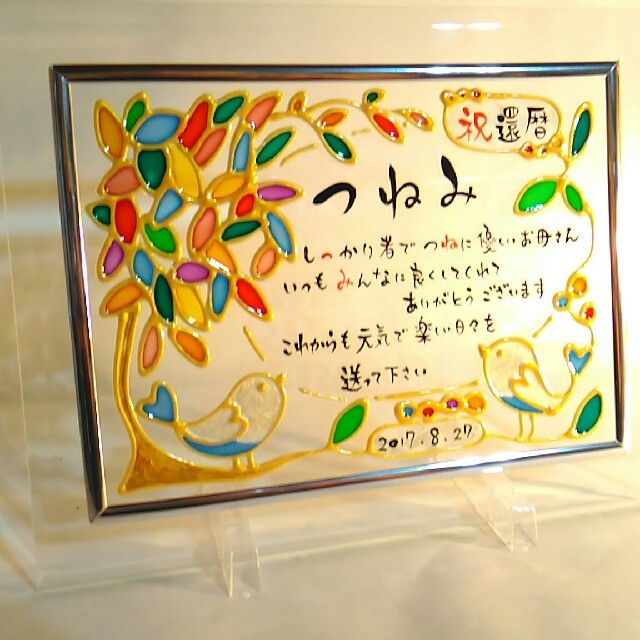 祝還暦
つねみ
しっかり者でつねに優しいお母さん
いつもみんなに良くしてくれて
ありがとうございます
これからも元気で楽しい日々を
送って下さい
2017.8.27